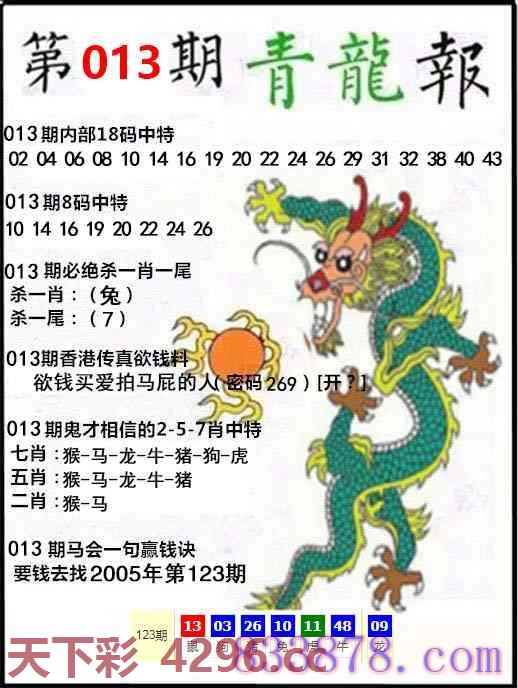 第013期青龍報
013期内部18码中特
02 04 06 08 10 14 16 19 20 22 24 26 29 31 32 38 40 43
013期8码中特
10 14 16 19 20 22 24 26
013期必绝杀一肖一尾
杀一肖：（兔）
杀一尾：（7）
013期香港传真欲钱料
欲钱买爱拍马屁的人(密码269)[开？]
013期鬼才相信的2-5-7肖中特
七肖：猴-马-龙-牛-猪-狗-虎
五肖：猴-马-龙-牛-猪
二肖：猴-马
013期马会一句赢钱诀
要钱去找2005年第123期
123期 13 03 26 10 11 48 09
鼠 狗 兔 虎 牛 龙
天下彩 4296.cc
833878.com